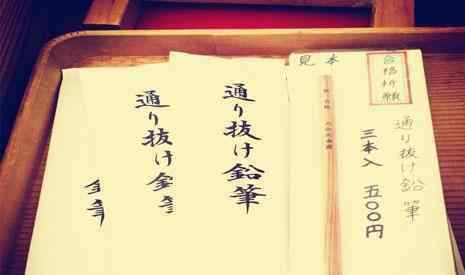 見本
合格祈願
通り抜け鉛筆
三本入 五〇〇円
通り抜け鉛筆
通り抜け